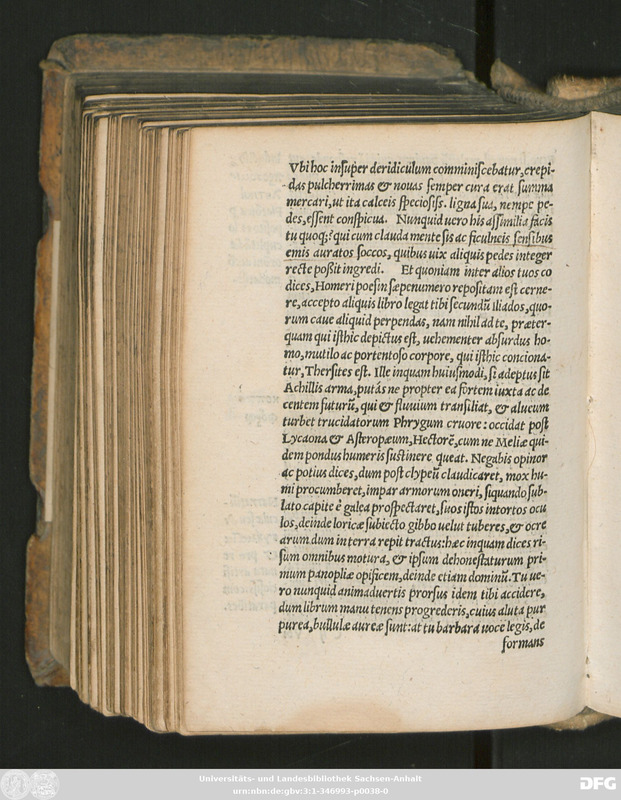 Vbi hoc insuper deridiculum comminiscebatur, crepi-
das pulcherrimas & nouas semper cura erat summa
mercari, ut ita calceis speciosiss. ligna sua, nempe pe-
des, essent conspicua. Nunquid uero his assimilia facis
tu quoq;? qui cum clauda mente sis ac ficulneis sensibus
emis auratos soccos, quibus uix aliquis pedes integer
recte poßit ingredi. Et quoniam inter alios tuos co
dices, Homeri poesin sæpenumero repositam est cerne-
re, accepto aliquis libro legat tibi secundũ iliados, quo-
rum caue aliquid perpendas, nam nihil ad te, præter-
quam qui isthic depictus est, uehementer absurdus ho-
mo, mutilo ac portentoso corpore, qui isthic conciona-
tur, Thersites est. Ille inquam huiusmodi, si adeptus sit
Achillis arma, putás ne propter ea fortem iuxta ac de
centem futurũ, qui & fluuium transiliat, & alueum
turbet trucidatorum Phrygum cruore: occidat post
Lycaona & Asteropæum, Hectorẽ, cum ne Meliæ qui-
dem pondus humeris sustinere queat. Negabis opinor
ac potius dices, dum post clypeũ claudicaret, mox hu-
mi procumberet, impar armorum oneri, siquando sub-
lato capite è galea prospectaret, suos istos intortos ocu
los, deinde loricæ subiecto gibbo uelut tuberes, & ocre
arum dum in terra repit tractus: hæc inquam dices ri-
sum omnibus motura, & ipsum dehonestaturum pri-
mum panopliæ opificem, deinde etiam dominũ. Tu ue-
ro nunquid animaduertis prorsus idem tibi accidere,
dum librum manu tenens progrederis, cuius aluta pur
purea, bullulæ aureæ sunt: at tu barbara uoce legis, de
formans
Universitäts- und Landesbibliothek Sachsen-Anhalt
urn:nbn:de:gbv:3:1-346993-p0038-0
DFG